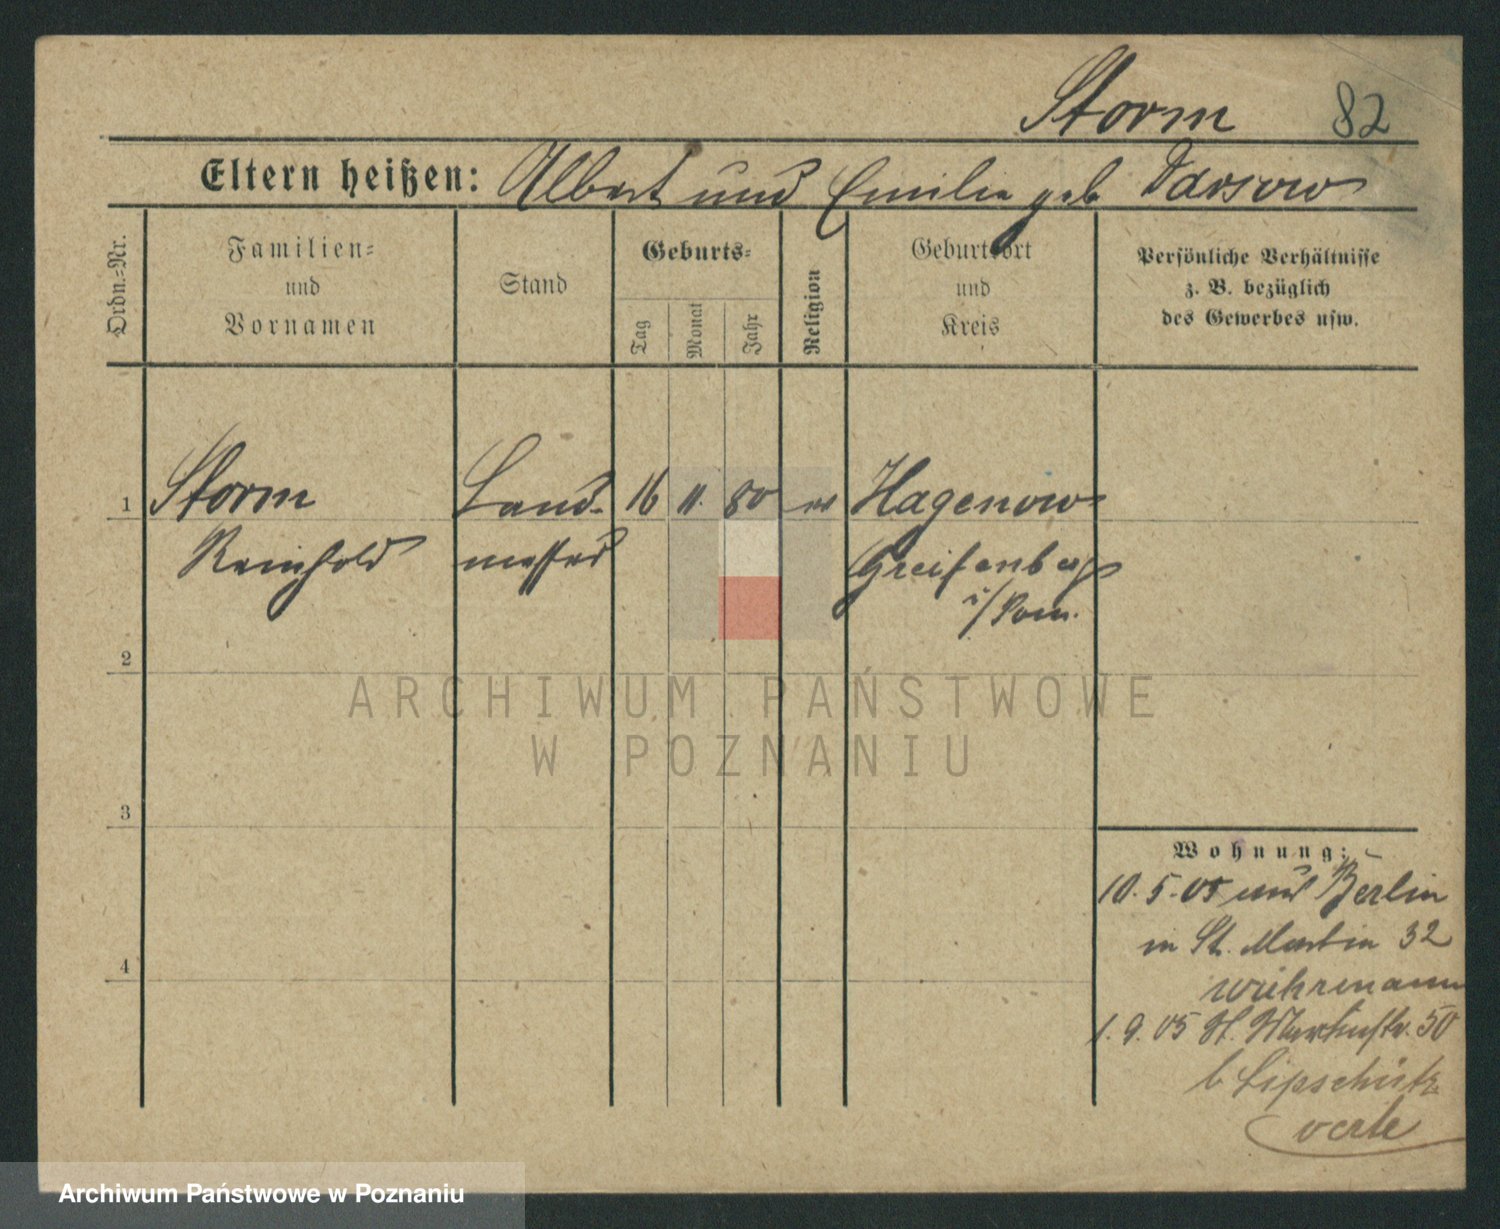 Storm 82
Eltern heißen: Albert und Emilie geb Darsow
Ordn.=Nr.
Familien=
und
Vornamen
Stand
Geburts=
Tag
Monat
Jahr
Religion
Geburtsort
und
Kreis
Persönliche Verhältnisse
z. B. bezüglich
des Gewerbes usw.
1 Storm Land- 16 11. 80 ev Hagenow
Reinhold messer Greifenberg
i/Pom.
2
ARCHIWUM PAŃSTWOWE
W POZNANIU
3
Wohnung:
10. 5. 05 aus Berlin
in St. Martin 32
Wührmann
4
1. 9. 05 St. Martinstr. 50
b Lipschütz
verte
Archiwum Państwowe w Poznaniu